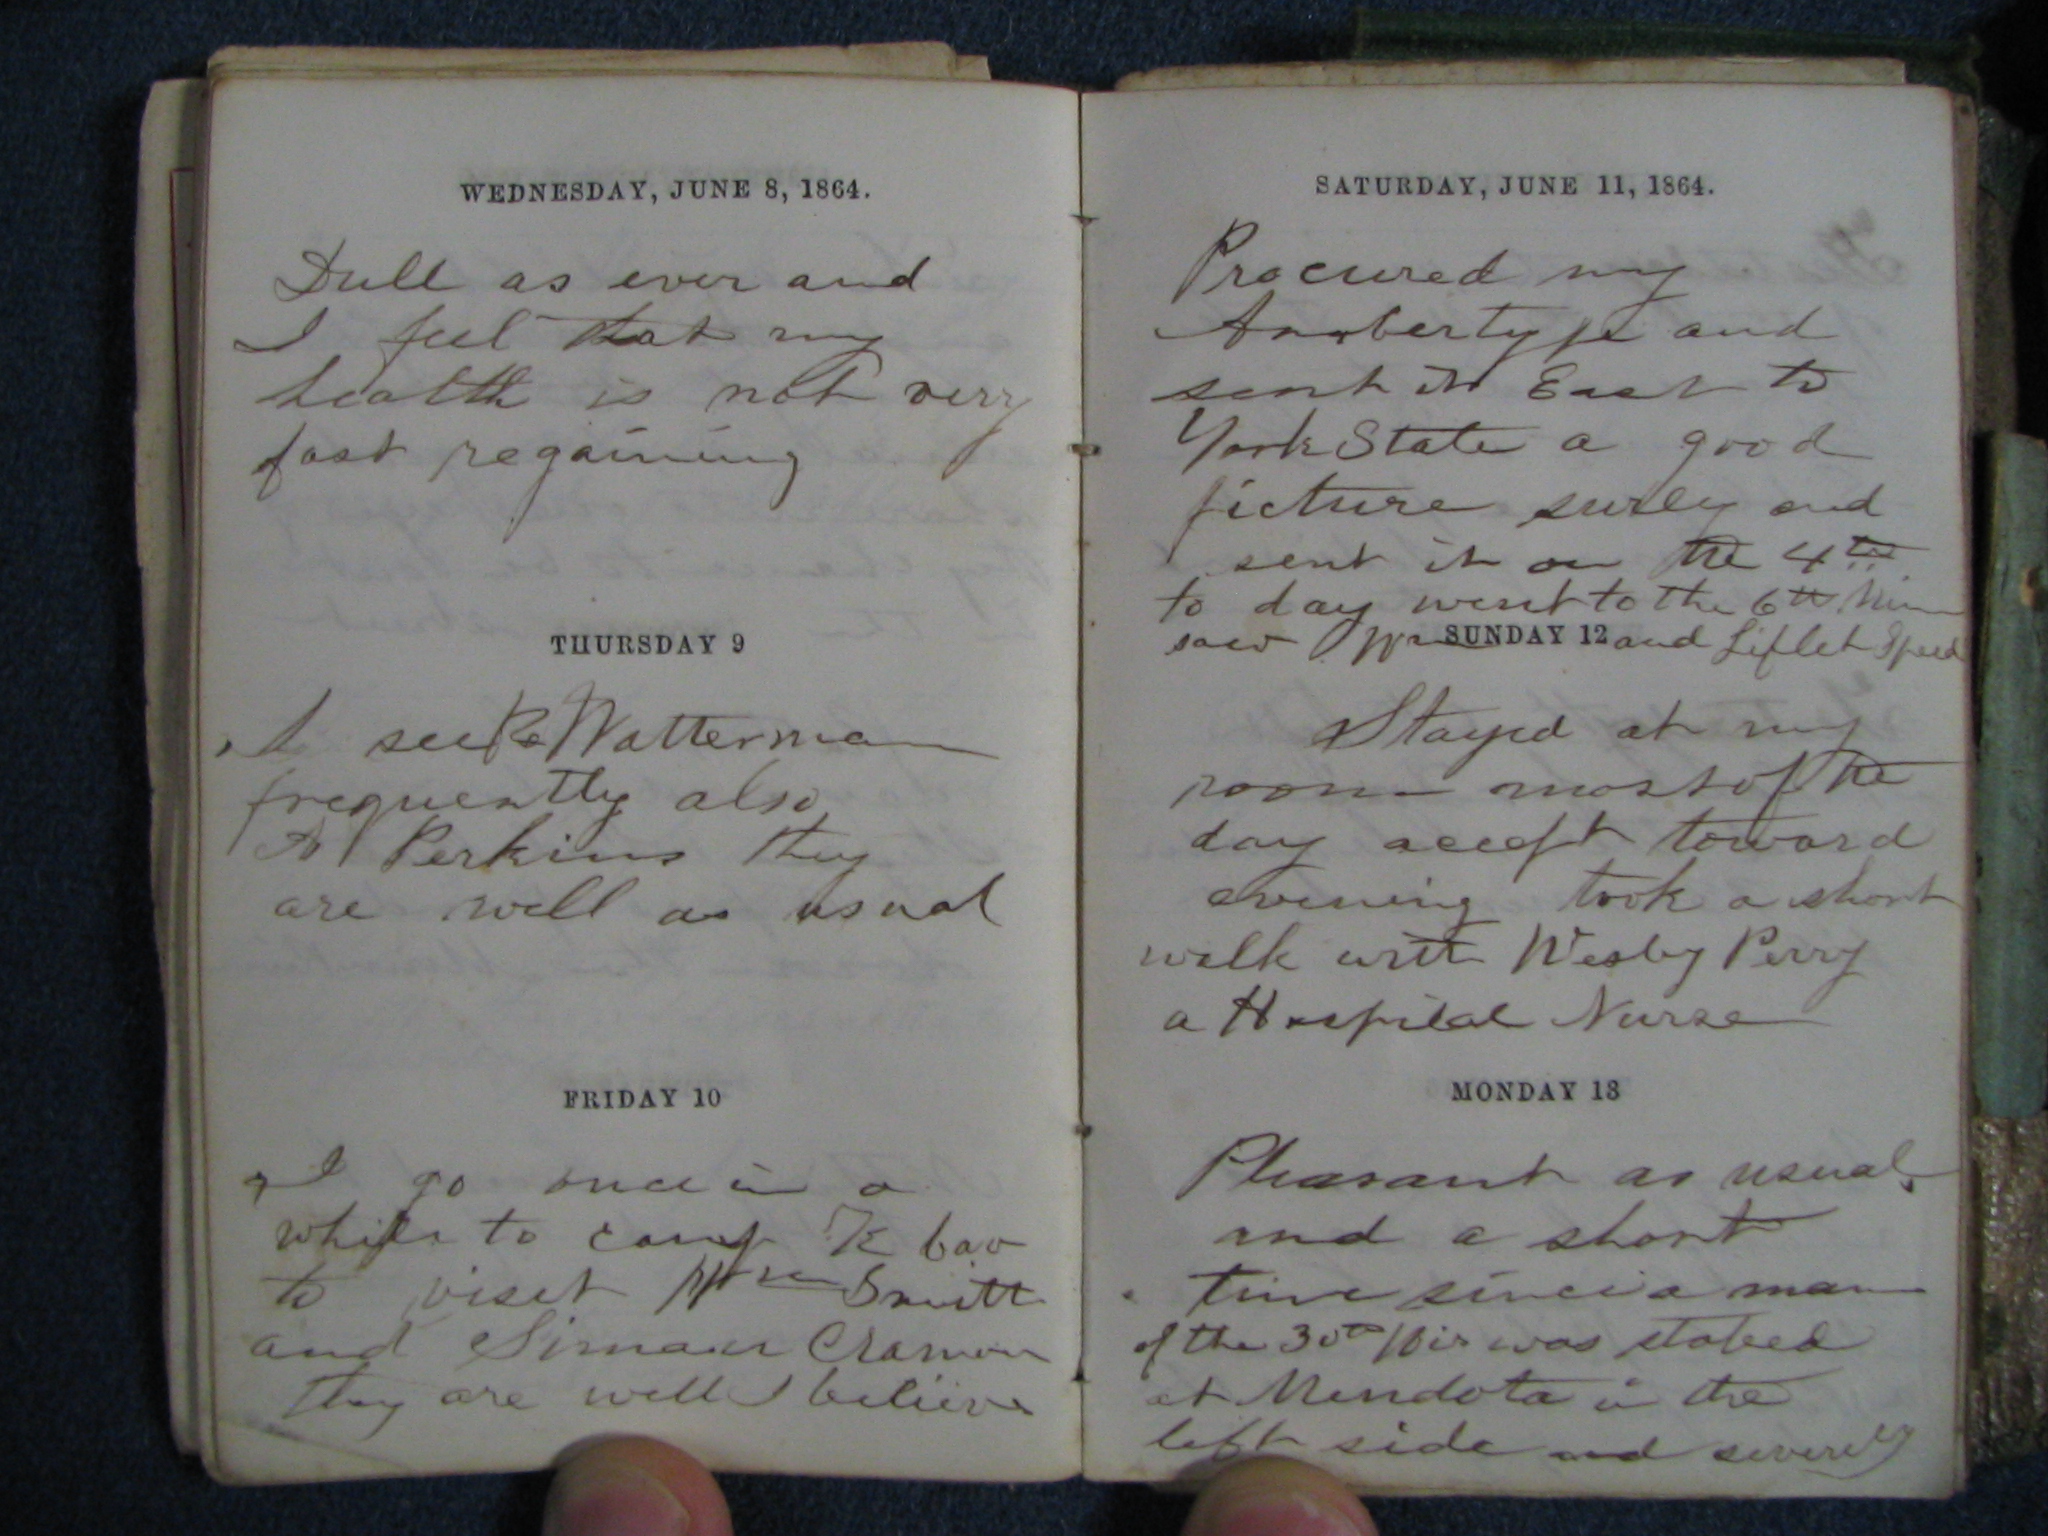 WEDNESDAY, JUNE 8, 1864.
Dull as ever and
I feel that my
health is not very
fast regaining
THURSDAY 9
I see Watterman
frequently also
A Perkins they
are well as usual
FRIDAY 10
I go once in a
while to camp
to viset Wm Smith
and
they are well I believe
SATURDAY, JUNE 11, 1864.
Procured my
Ambertype and
sent it East to
York State a good
picture surley and
sent it on the 4th
to day went to the 6th Min
saw and
SUNDAY 12
Stayed at my
room most of the
day accept toward
evening took a short
walk with Wesby Perry
a Hospital Nurse
MONDAY 13
Pleasant as usual
and a short
time since a man
of the 30th Wis was stabed
at Mendota in the
left side and severely